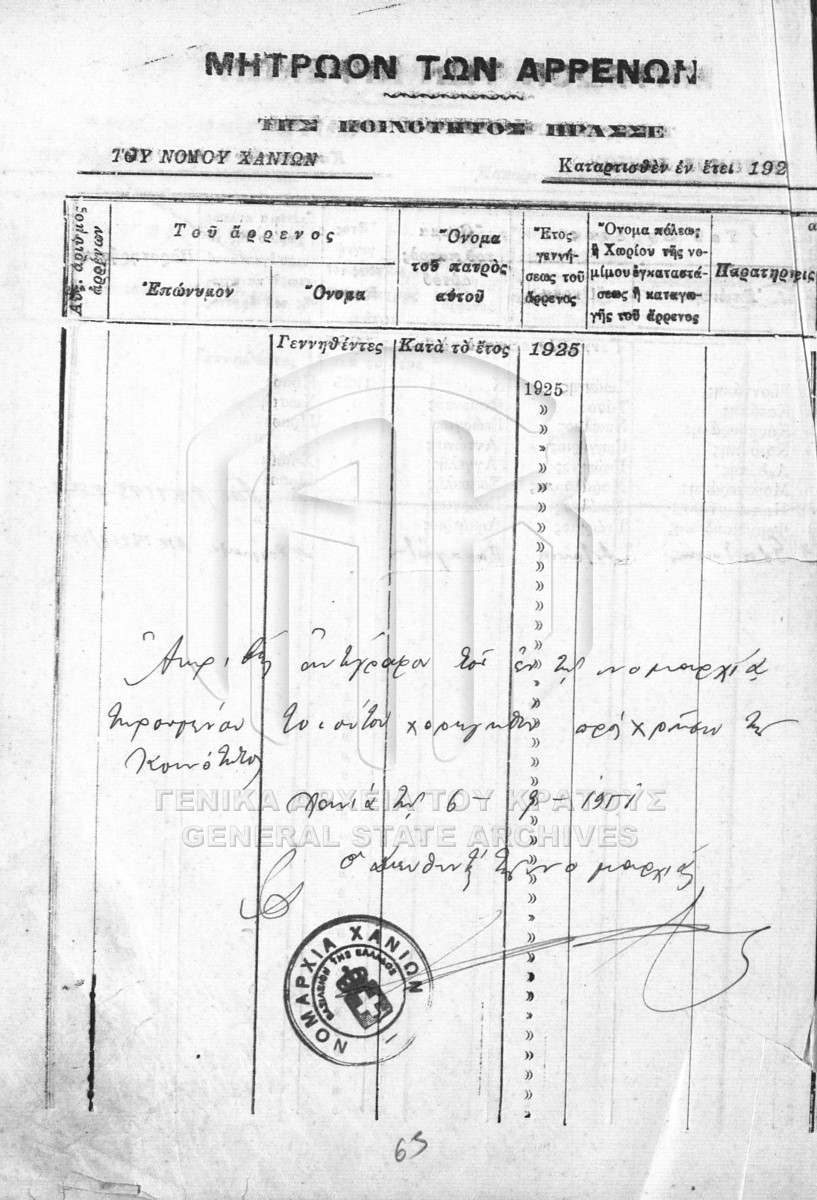 ΜΗΤΡΩΟΝ ΤΩΝ ΑΡΡΕΝΩΝ
ΤΗΣ ΚΟΙΝΟΤΗΤΟΣ ΠΡΑΣΣΕ
ΤΟΥ ΝΟΜΟΥ ΧΑΝΙΩΝ
Καταρτισθὲν ἐν ἔτει 192
Αὔξ. ἀριθμὸς ἀρρένων
Τοῦ ἄρρενος
Ἐπώνυμον
Ὄνομα
Ὄνομα
τοῦ πατρὸς
αὐτοῦ
Ἔτος
γεννή-
σεως τοῦ
ἄρρενος
Ὄνομα πόλεως
ἢ Χωρίου τῆς νο-
μίμου ἐγκαταστά-
σεως ἢ καταγω-
γῆς τοῦ ἄρρενος
Παρατηρήσεις
Γεννηθέντες Κατὰ τὸ ἔτος 1925
1925
Ἀκριβὲς ἀντίγραφον τοῦ ἐν τῇ νομαρχίᾳ
τηρουμένου τοιούτου χορηγηθὲν πρὸς χρῆσιν τῆς
Κοινότητος
Χανιά τῇ 6
Ὁ Διευθυντὴς τῆς νομαρχίας
ΓΕΝΙΚΑ ΑΡΧΕΙΑ ΤΟΥ ΚΡΑΤΟΥΣ
GENERAL STATE ARCHIVES
ΝΟΜΑΡΧΙΑ ΧΑΝΙΩΝ
ΒΑΣΙΛΕΙΟΝ ΤΗΣ ΕΛΛΑΔΟΣ
65